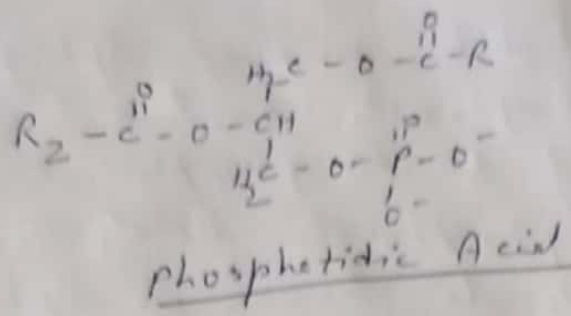 O
||
H₂C - O - C - R
O
||
R₂ - C - O - CH
|
H₂C - O - P - O⁻
|
O⁻
Phosphetidic Acid